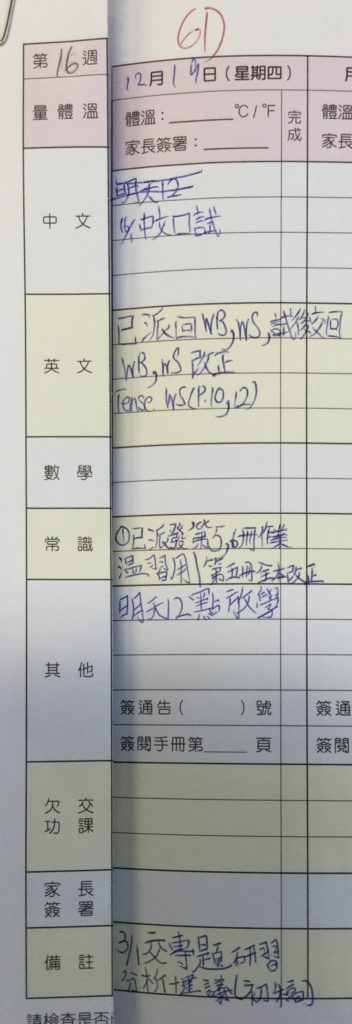 6D
第16週
12月19日(星期四)
量體溫
體溫：______ °C/°F
家長簽署：______
完成
體溫
家長
中文
明天12
中文口試
英文
已派回WB,WS,試後交回
WB,WS改正
Tense WS(P.10,12)
數學
常識
①已派發第5,6冊作業
溫習用|第五冊全本改正
其他
明天12點放學
簽通告( )號
簽通
簽閱手冊第____頁
簽閱
欠交功課
家長簽署
備註
3/1交專題研習
分析+建議(初稿)
請檢查是否